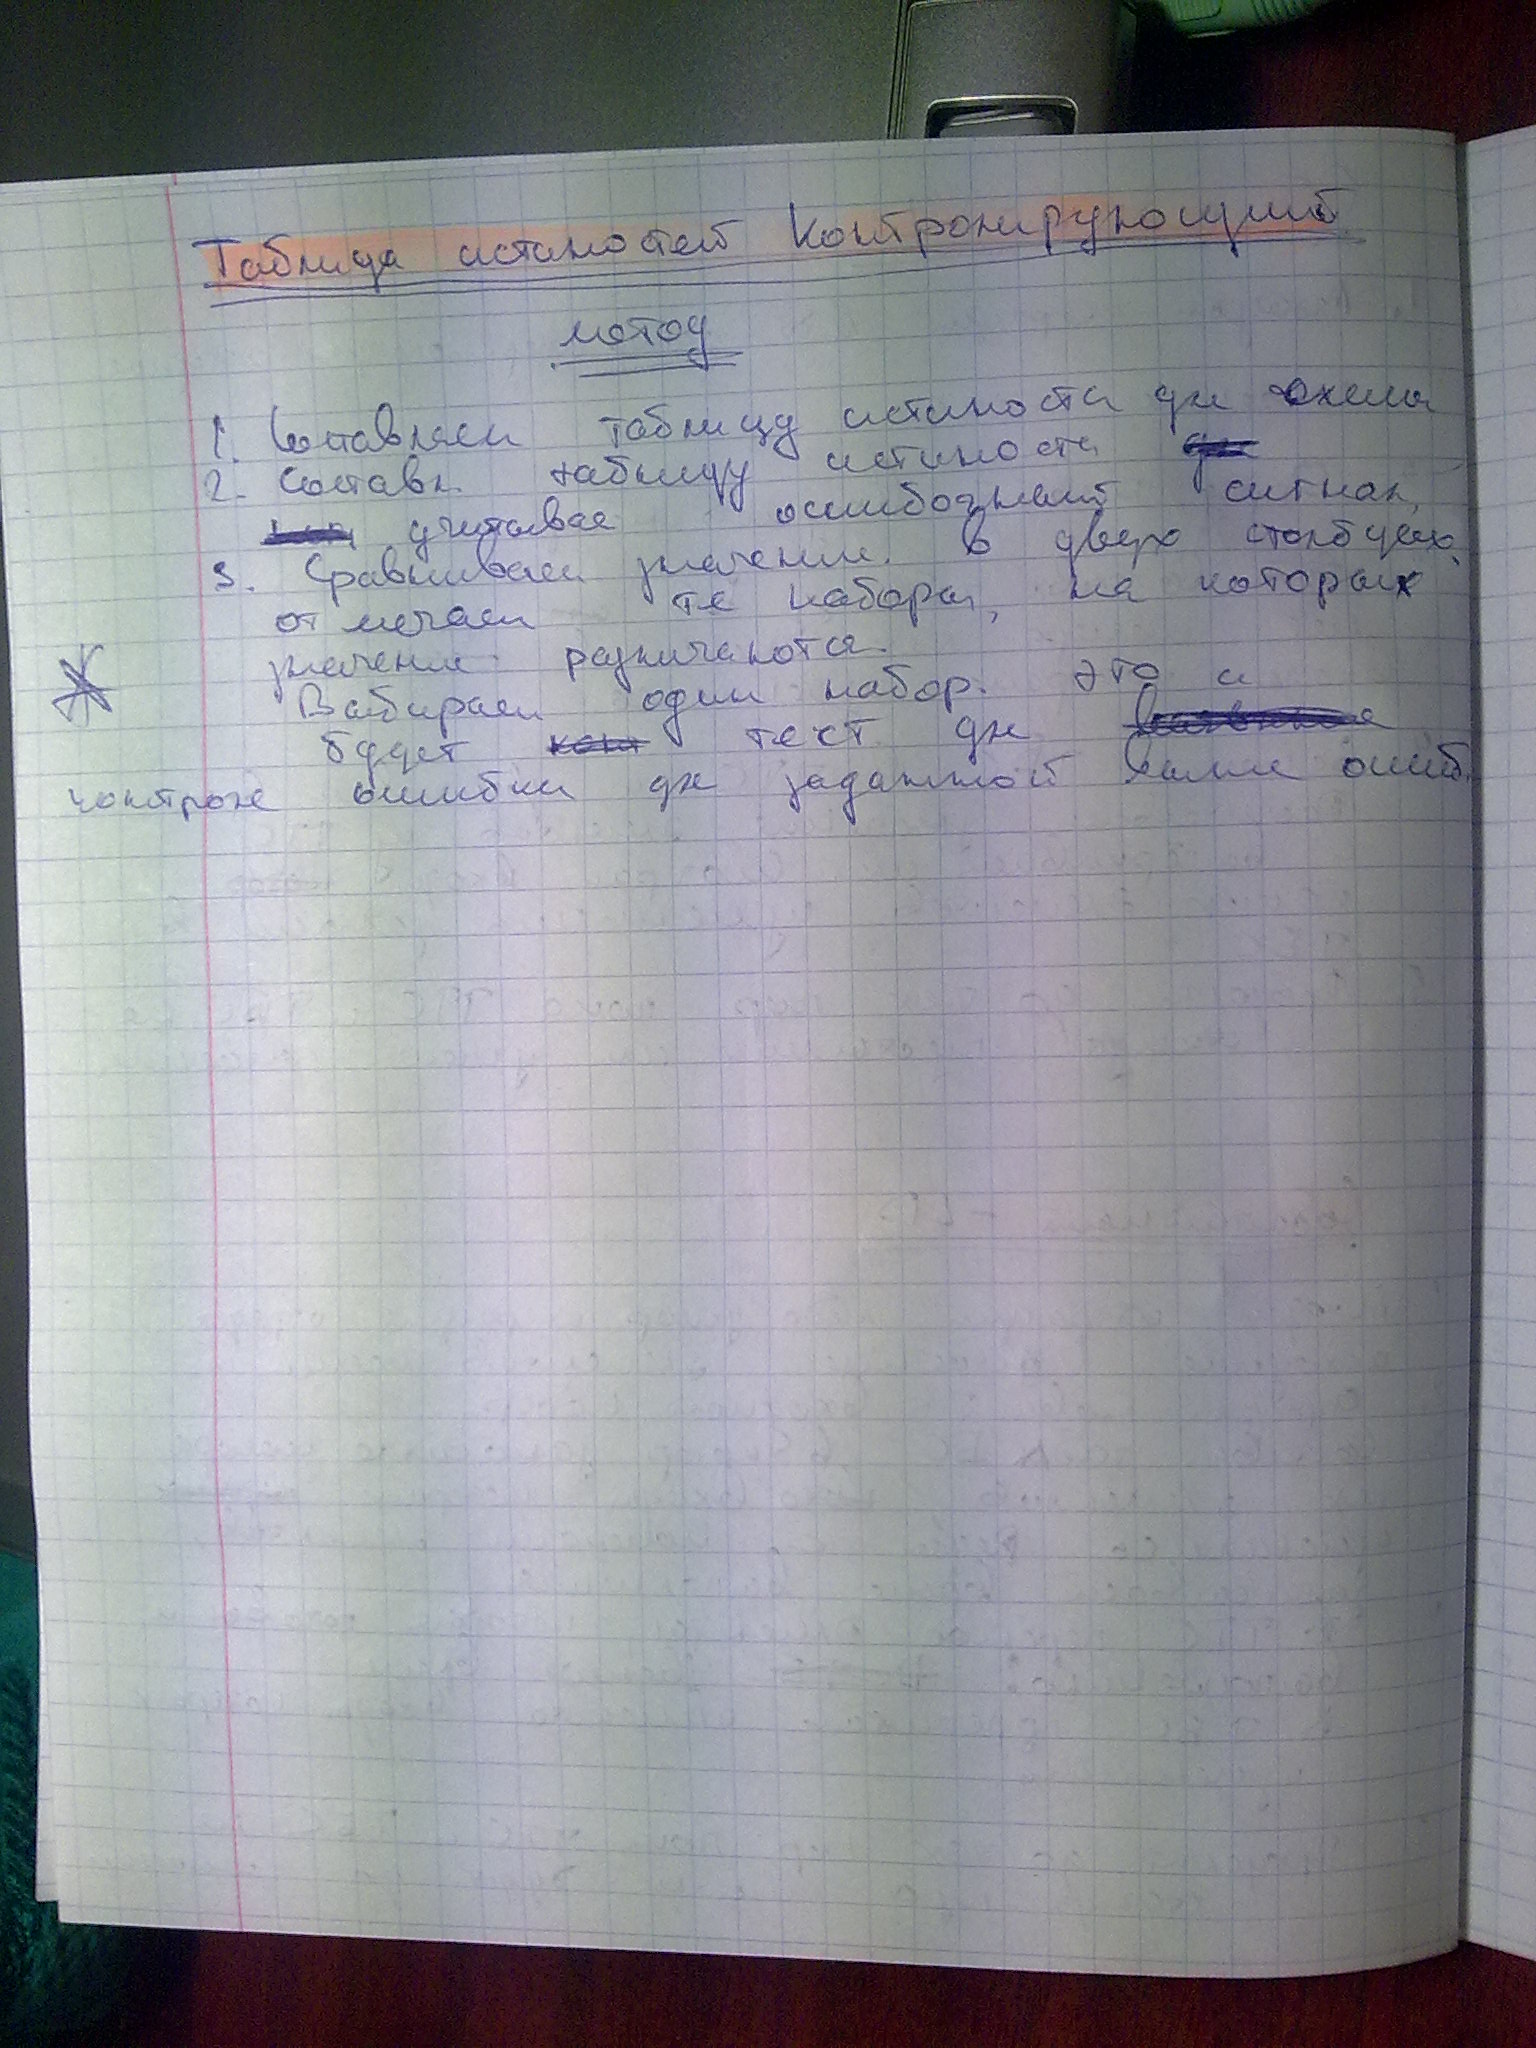 Таблица истиностей Контролирующий
метод
1. Составляем таблицу истиности для схемы
2. Составл. таблицу истиности для
учитывая ошибочный сигнал
3. Сравниваем значение. в двух столбцах
отмечаем те наборы, на которых
значение различаются.
Выбираем один набор. это и
будет тест для
контроля ошибки для заданной вами ошиб.